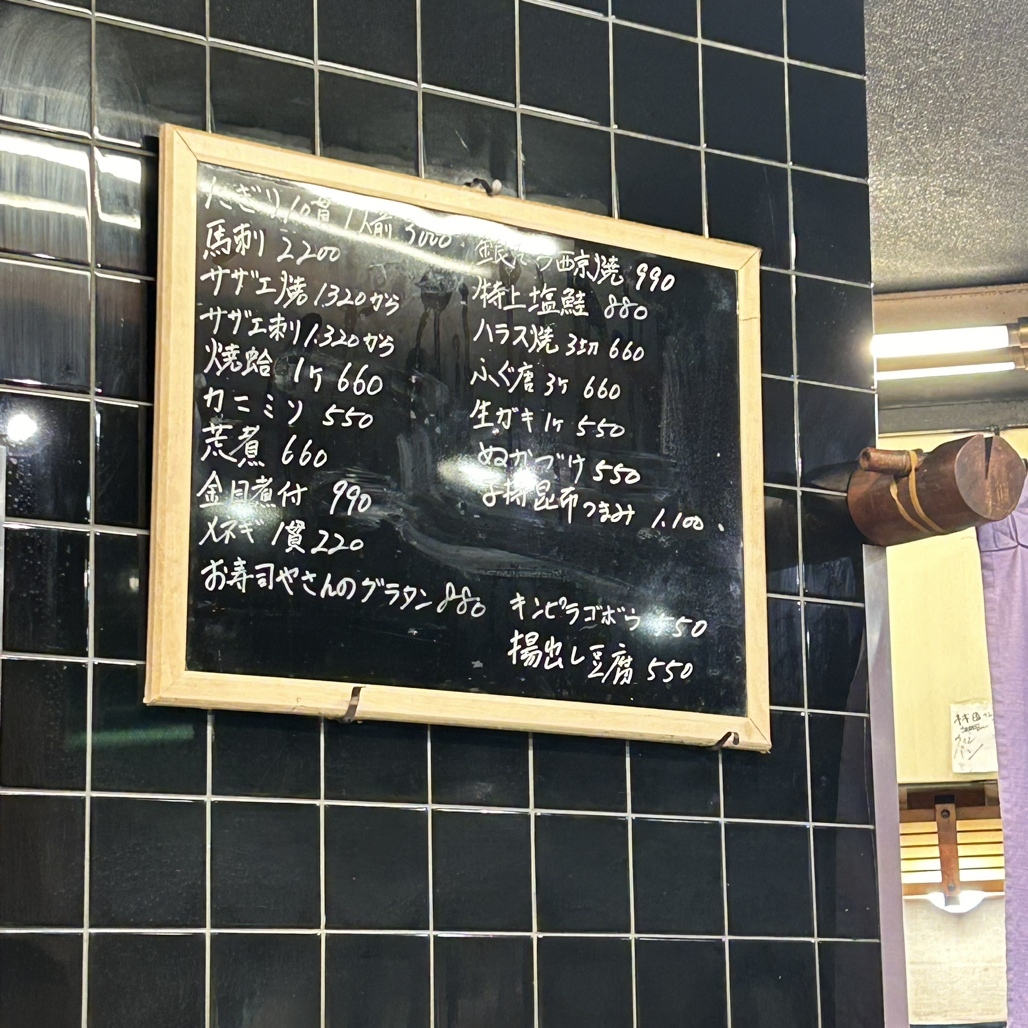 にぎり10貫 1人前 3000
馬刺 2200
サザエ焼 1320から
サザエ刺 1.320から
焼蛤 1ヶ 660
カニミソ 550
荒煮 660
金目煮付 990
メネギ 1貫 220
お寿司やさんのグラタン 880
西京焼 990
特上塩鮭 880
ハラス焼 3切 660
ふぐ唐 3ヶ 660
生ガキ 1ヶ 550
ぬかづけ 550
子持昆布つまみ 1.100.
キンピラゴボウ 550
揚出し豆腐 550